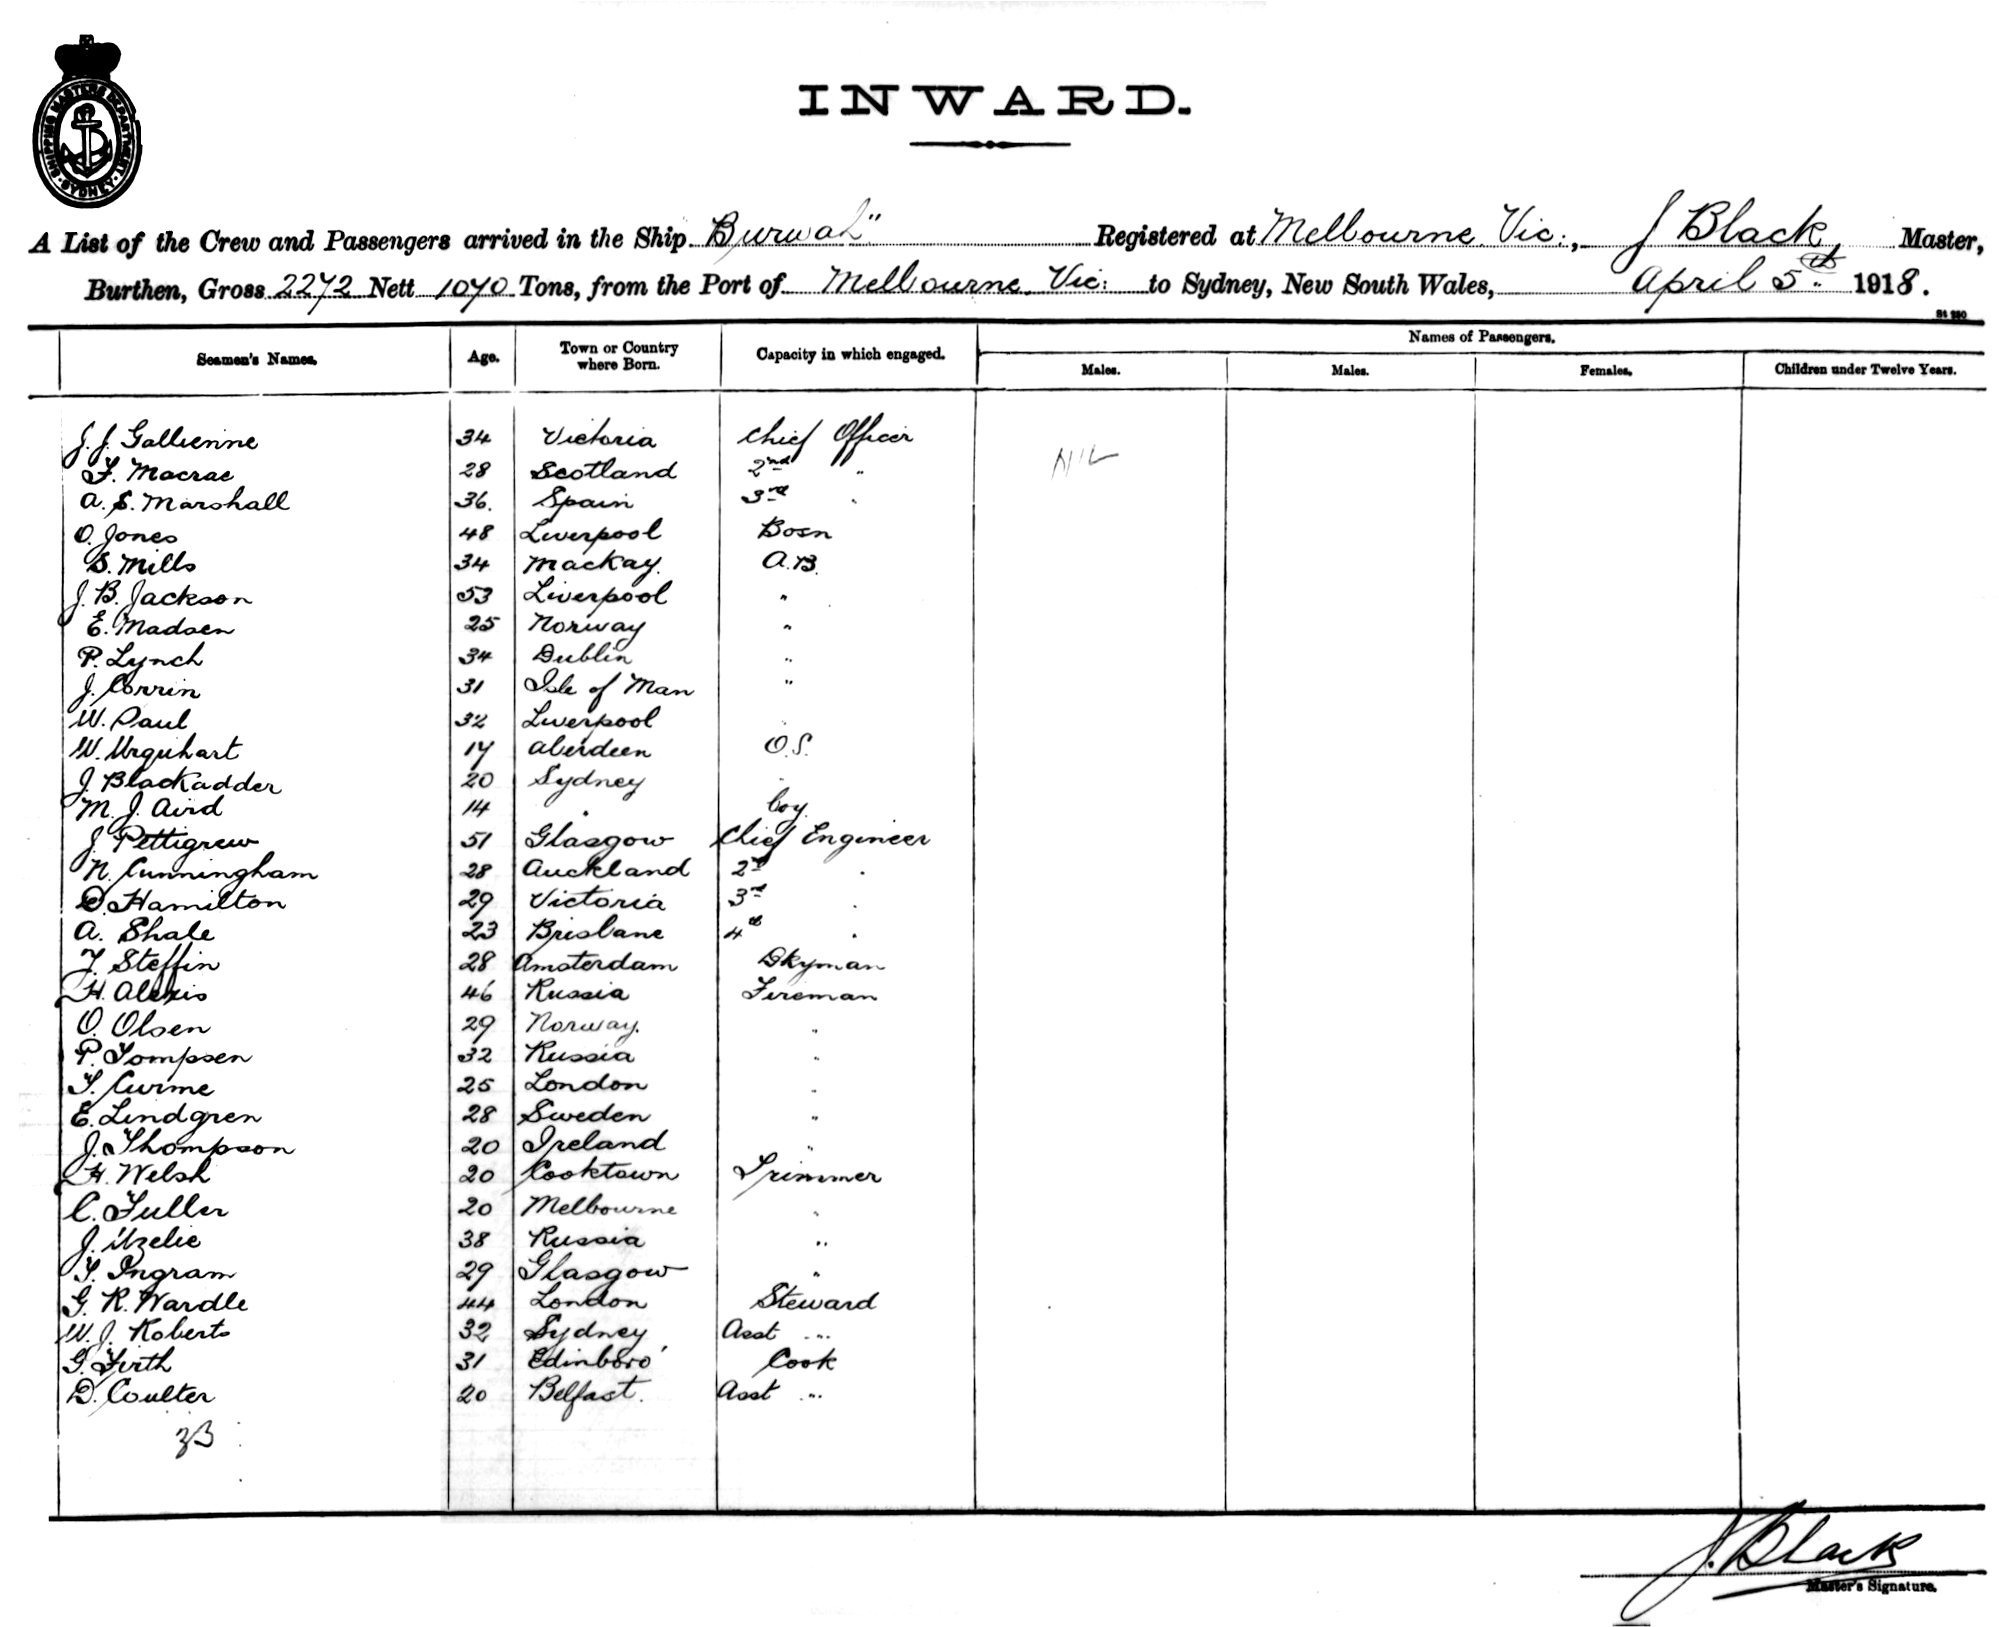 SHIPPING MASTERS DEPARTMENT
SYDNEY
INWARD.
A List of the Crew and Passengers arrived in the Ship Burwah" Registered at Melbourne Vic:, J Black, Master,
Burthen, Gross 2272 Nett 1070 Tons, from the Port of Melbourne Vic: to Sydney, New South Wales, April 5th 1918.
St 280
Seamen's Names. Age. Town or Country where Born. Capacity in which engaged. Names of Passengers.
Males. Males. Females. Children under Twelve Years.
J. J. Gallienne 34 Victoria Chief Officer
F. Macrae 28 Scotland 2nd " NIL
A. S. Marshall 36. Spain 3rd "
O. Jones 48 Liverpool Bosn
S. Mills 34 Mackay. A.B.
J. B. Jackson 53 Liverpool "
E. Madsen 25 Norway "
P. Lynch 34 Dublin "
J. Corrin 31 Isle of Man "
W. Paul 32 Liverpool "
W. Urquhart 17 Aberdeen O.S.
J. Blackadder 20 Sydney "
M. J. Aird 14 " boy
J. Pettigrew 51 Glasgow Chief Engineer
N. Cunningham 28 Auckland 2nd "
D. Hamilton 29 Victoria 3rd "
A. Shale 23 Brisbane 4th "
J. Steffin 28 Amsterdam Dkyman
H. Alexis 46 Russia Fireman
O. Olsen 29 Norway. "
P. Tompsen 32 Russia "
T. Curme 25 London "
E. Lindgren 28 Sweden "
J. Thompson 20 Ireland "
H. Welsh 20 Cooktown Trimmer
C. Fuller 20 Melbourne "
J. 38 Russia "
T. Ingram 29 Glasgow "
G. R. Wardle 44 London Steward
W. J. Roberts 32 Sydney Asst "
G. Firth 31 Edinboro' Cook
D. Coulter 20 Belfast. Asst "
33
J. Black
Master's Signature.